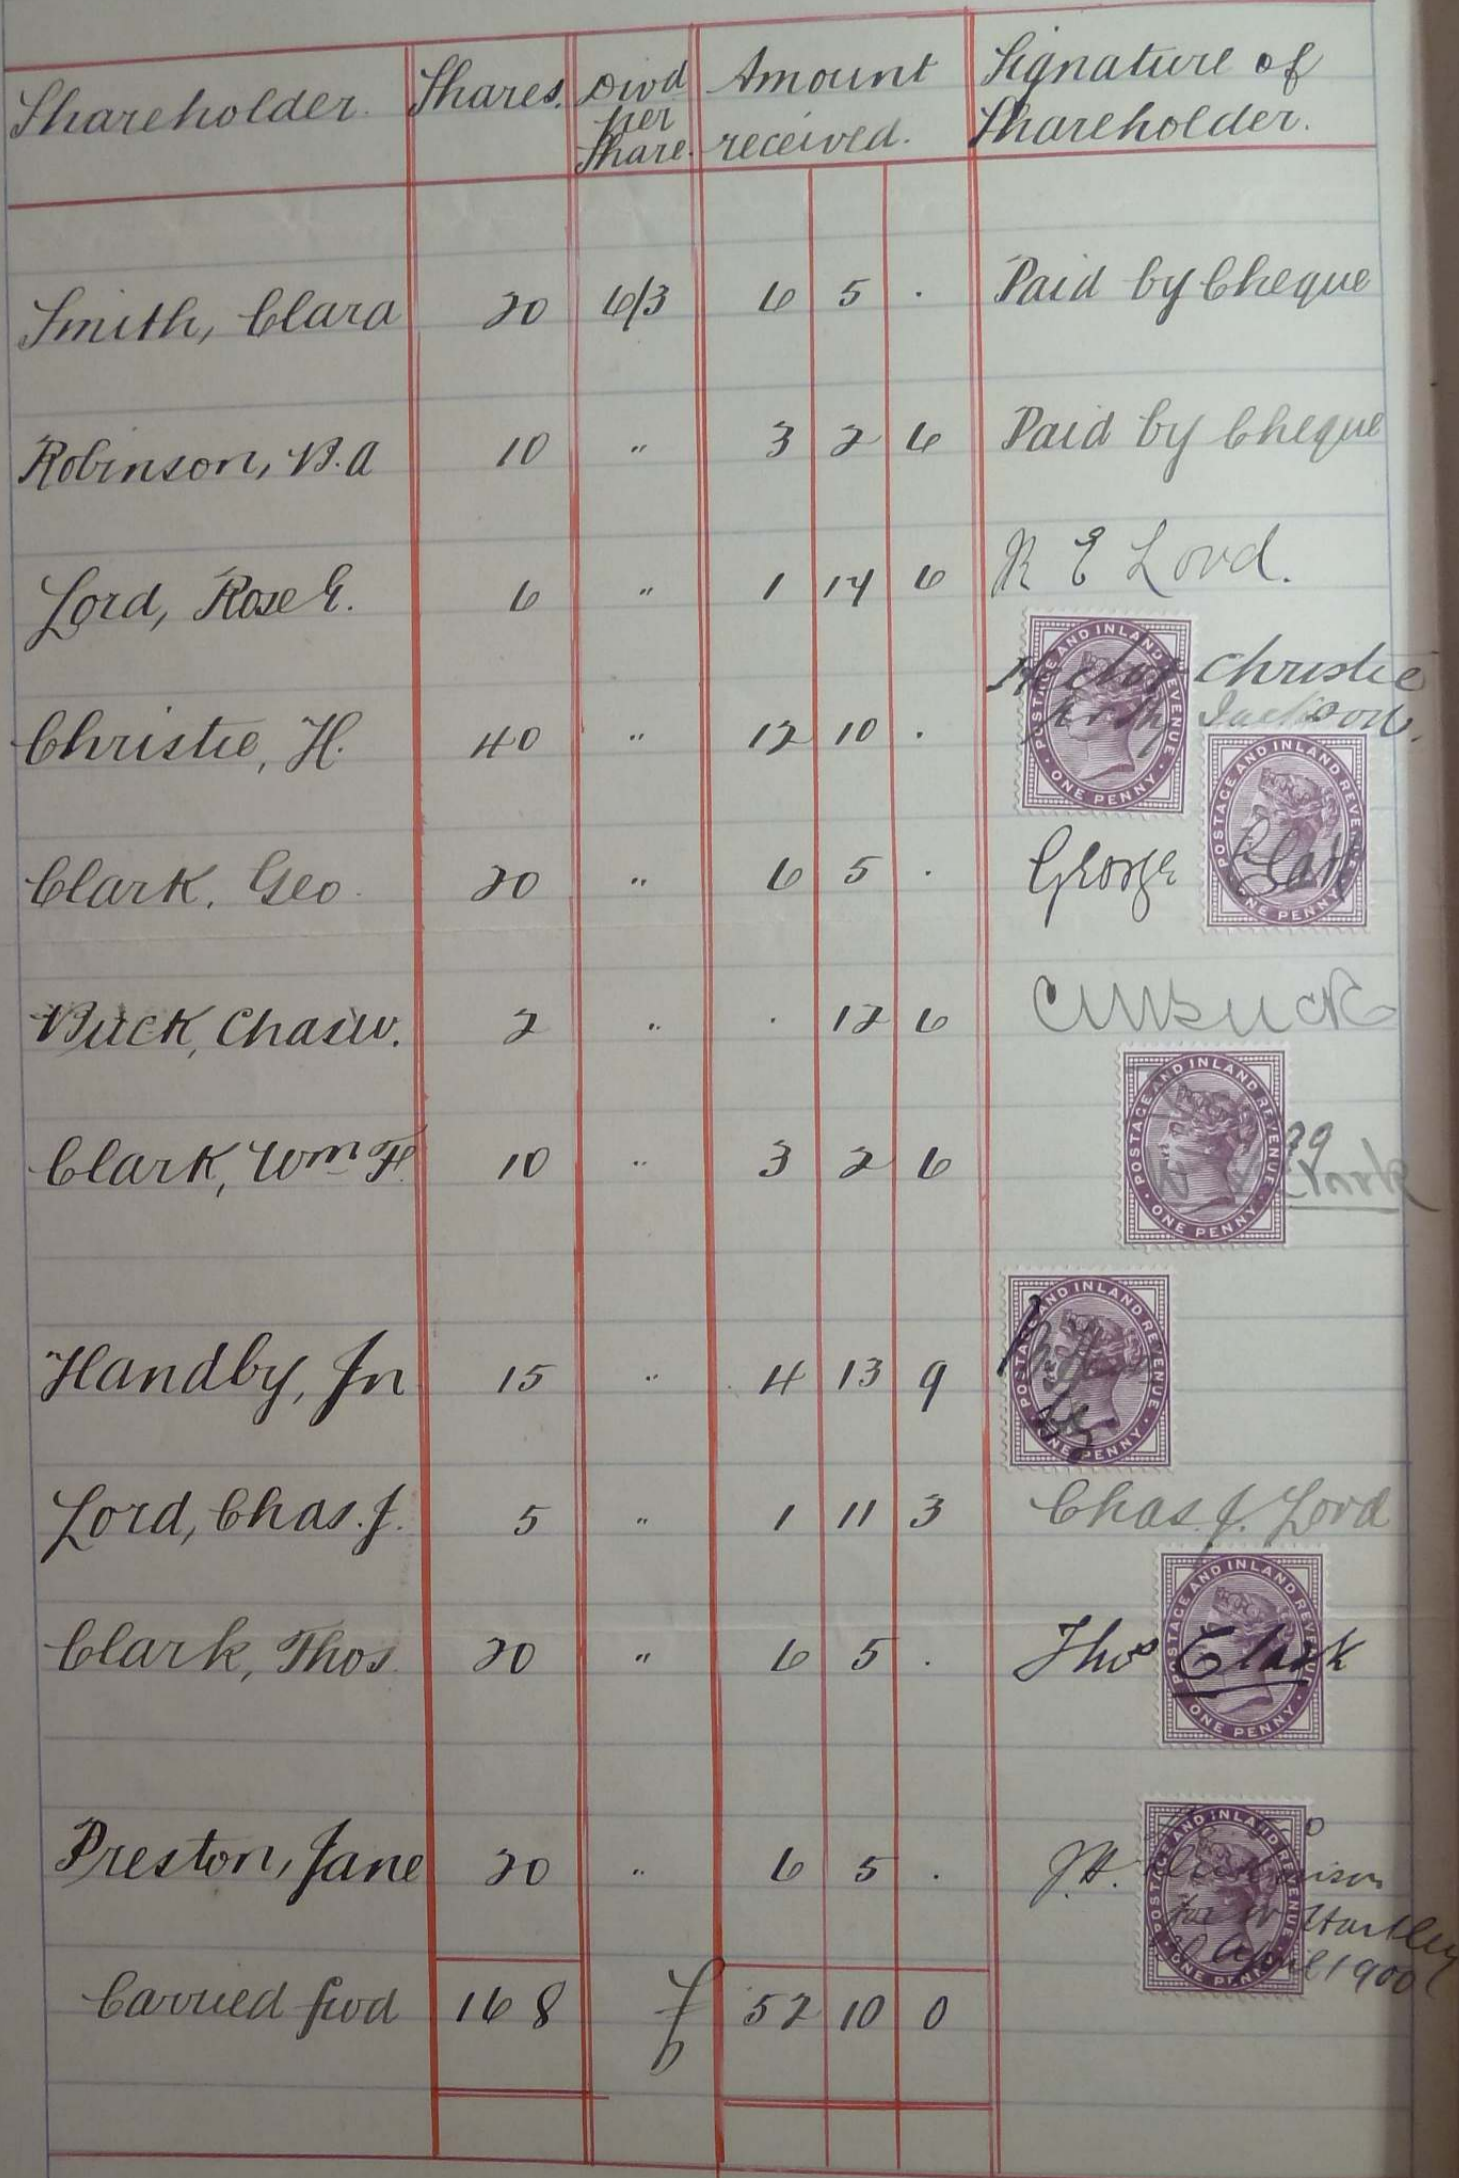 Shareholder. Shares. Divd per Share. Amount received. Signature of Shareholder.
Smith, Clara 20 6/3 6 5 . Paid by Cheque
Robinson, B.A 10 " 3 2 6 Paid by Cheque
Lord, Rose E. 6 " 1 17 6 R E Lord.
Christie, H. 40 " 12 10 . Hector Christie
Jackson.
POSTAGE AND INLAND REVENUE ONE PENNY
Clark, Geo. 20 " 6 5 . George Clark
POSTAGE AND INLAND REVENUE ONE PENNY
Buck, Chas W. 2 " . 12 6 C W BUCK
Clark, Wm F. 10 " 3 2 6 Clark
POSTAGE AND INLAND REVENUE ONE PENNY
Handby, Jn 15 " 4 13 9
POSTAGE AND INLAND REVENUE ONE PENNY
Lord, Chas. J. 5 " 1 11 3 Chas. J. Lord
Clark, Thos. 20 " 6 5 . Thos Clark
POSTAGE AND INLAND REVENUE ONE PENNY
Preston, Jane 20 " 6 5 . J.H.
for W Hartley
April 1900
POSTAGE AND INLAND REVENUE ONE PENNY
Carried fwd 168 £ 52 10 0